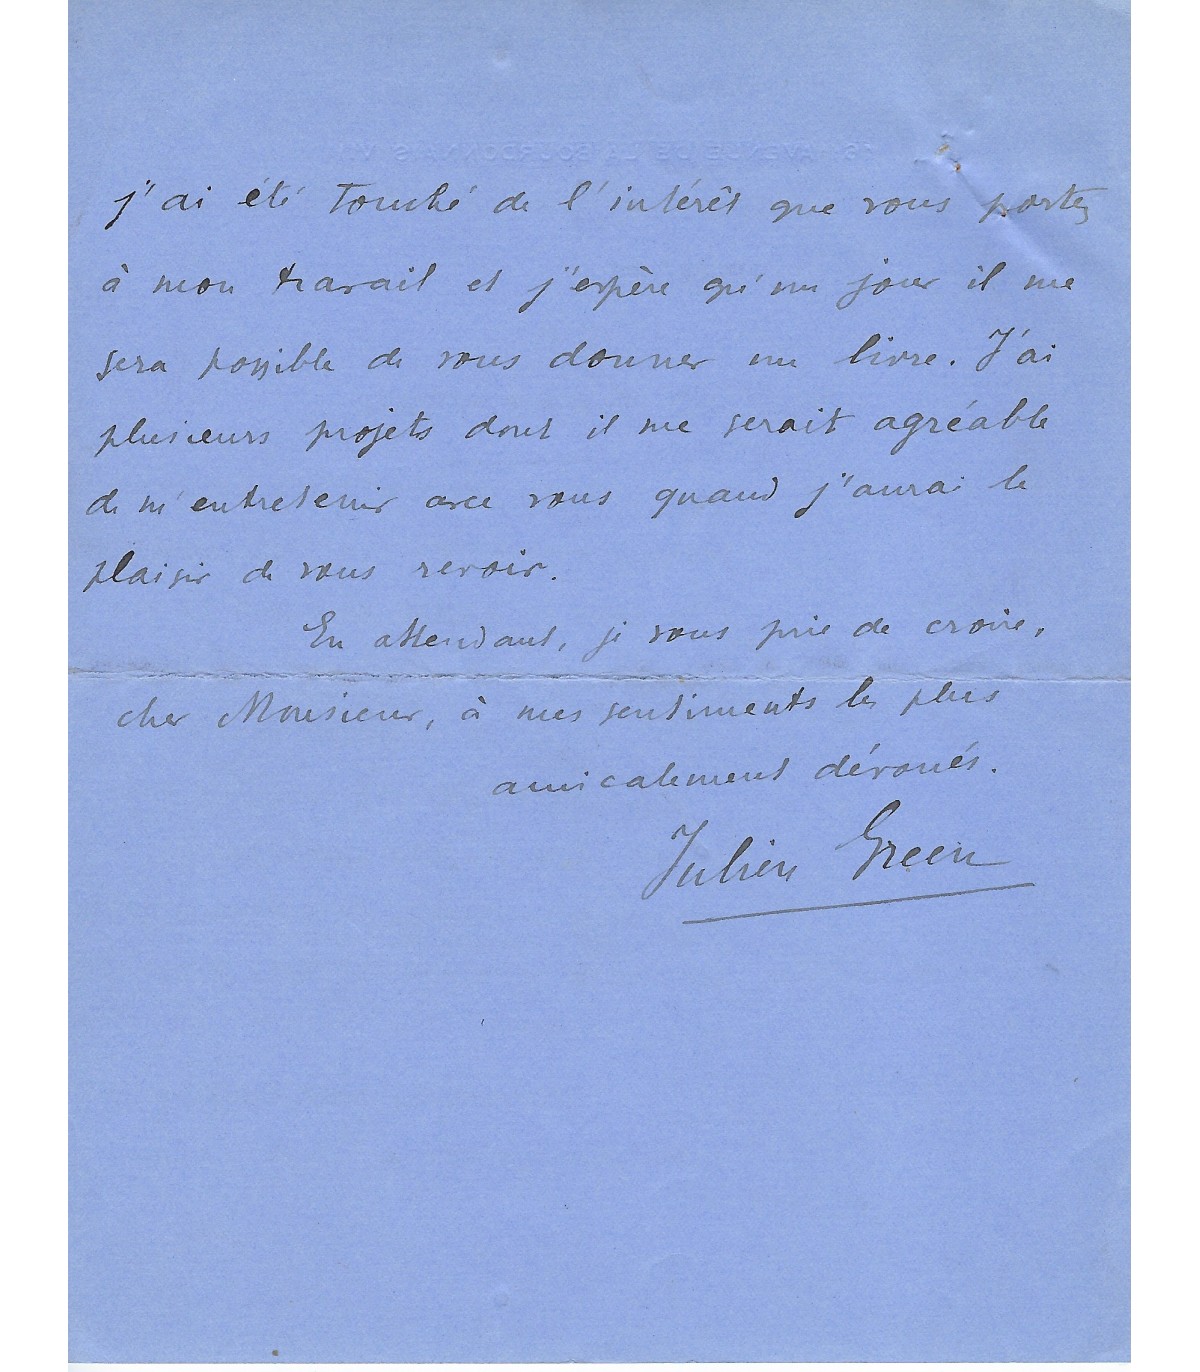 j'ai été touché de l'intérêt que vous portez
à mon travail et j'espère qu'un jour il me
sera possible de vous donner un livre. J'ai
plusieurs projets dont il me serait agréable
de m'entretenir avec vous quand j'aurai le
plaisir de vous revoir.
En attendant, je vous prie de croire,
cher Monsieur, à mes sentiments les plus
amicalement dévoués.
Julien Green